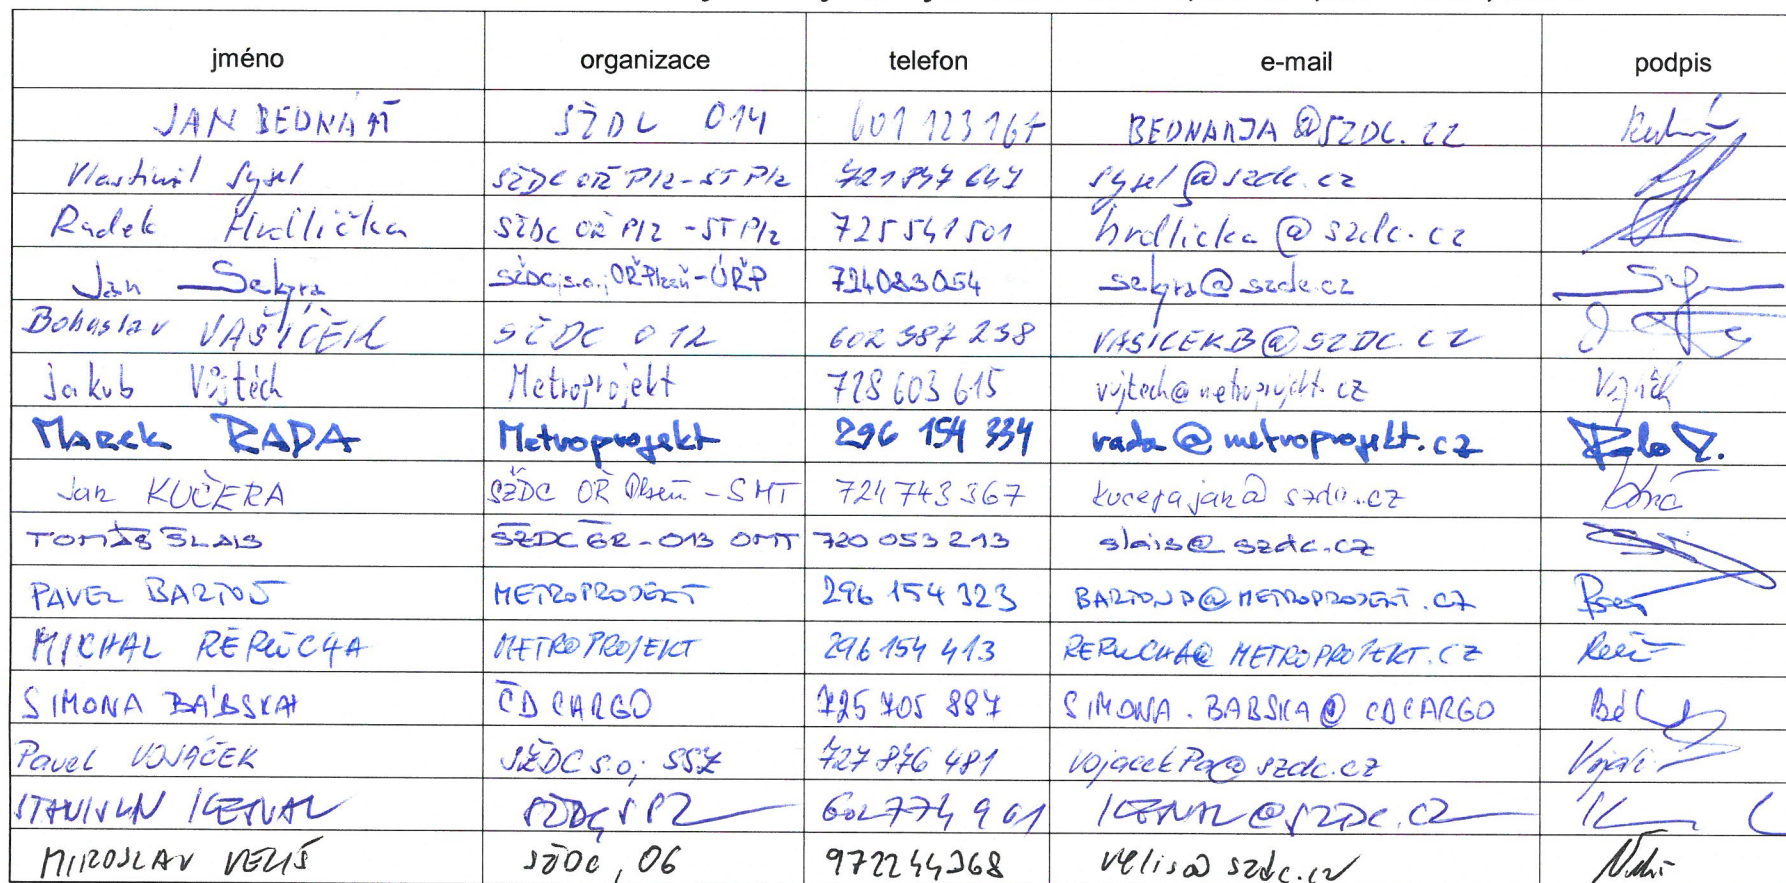 jméno organizace telefon e-mail podpis
JAN BEDNÁŘ SŽDC O14 601 123 167 BEDNARJA@SZDC.CZ
Vlastimil Sysel SŽDC OŘ Plz-ST Plz 721 847 647 sysel@szdc.cz
Radek Hrdlička SŽDC OŘ Plz -ST Plz 725 541 501 hrdlicka@szdc.cz
Jan Sekyra SŽDC, s.o., OŘ Plzeň-ÚŘP 724083054 sekyra@szdc.cz
Bohuslav VAŠÍČEK SŽDC O12 602 387 238 VASICEKB@SZDC.CZ
Jakub Vojtěch Metroprojekt 728 603 615 vojtech@metroprojekt.cz Vojtěch
Marek RADA Metroprojekt 296 154 334 rada@metroprojekt.cz
Jan KUČERA SŽDC OŘ Plzeň - SMT 724 743 367 kucerajan@szdc.cz
TOMÁŠ ŠLAIS SŽDC GŘ - O13 OMT 720 053 213 slais@szdc.cz
PAVEL BARTOŠ METROPROJEKT 296 154 323 BARTOSP@METROPROJEKT.CZ
MICHAL ŘEŘUCHA METROPROJEKT 296 154 413 RERUCHA@METROPROJEKT.CZ
SIMONA BÁBSKÁ ČD CARGO 725 705 887 SIMONA.BABSKA@CDCARGO
Pavel VOJÁČEK SŽDC s.o; SSZ 727 876 481 vojacekPa@szdc.cz
STANISLAV 602 774 961 @SZDC.CZ
MIROSLAV VELIŠ SŽDC, O6 972244368 velis@szdc.cz